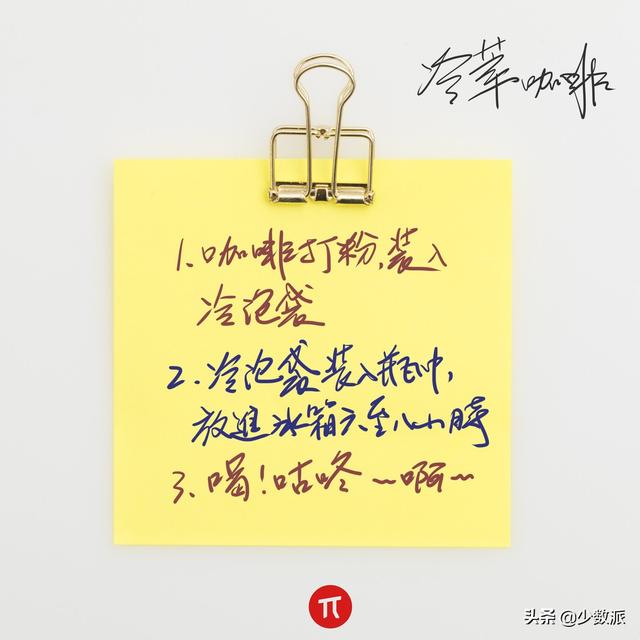 冷萃咖啡
1.咖啡打粉,装入
冷泡袋
2.冷泡袋装入瓶中,
放進冰箱六至八小時
3.喝!咕咚~啊~
头条 @少数派